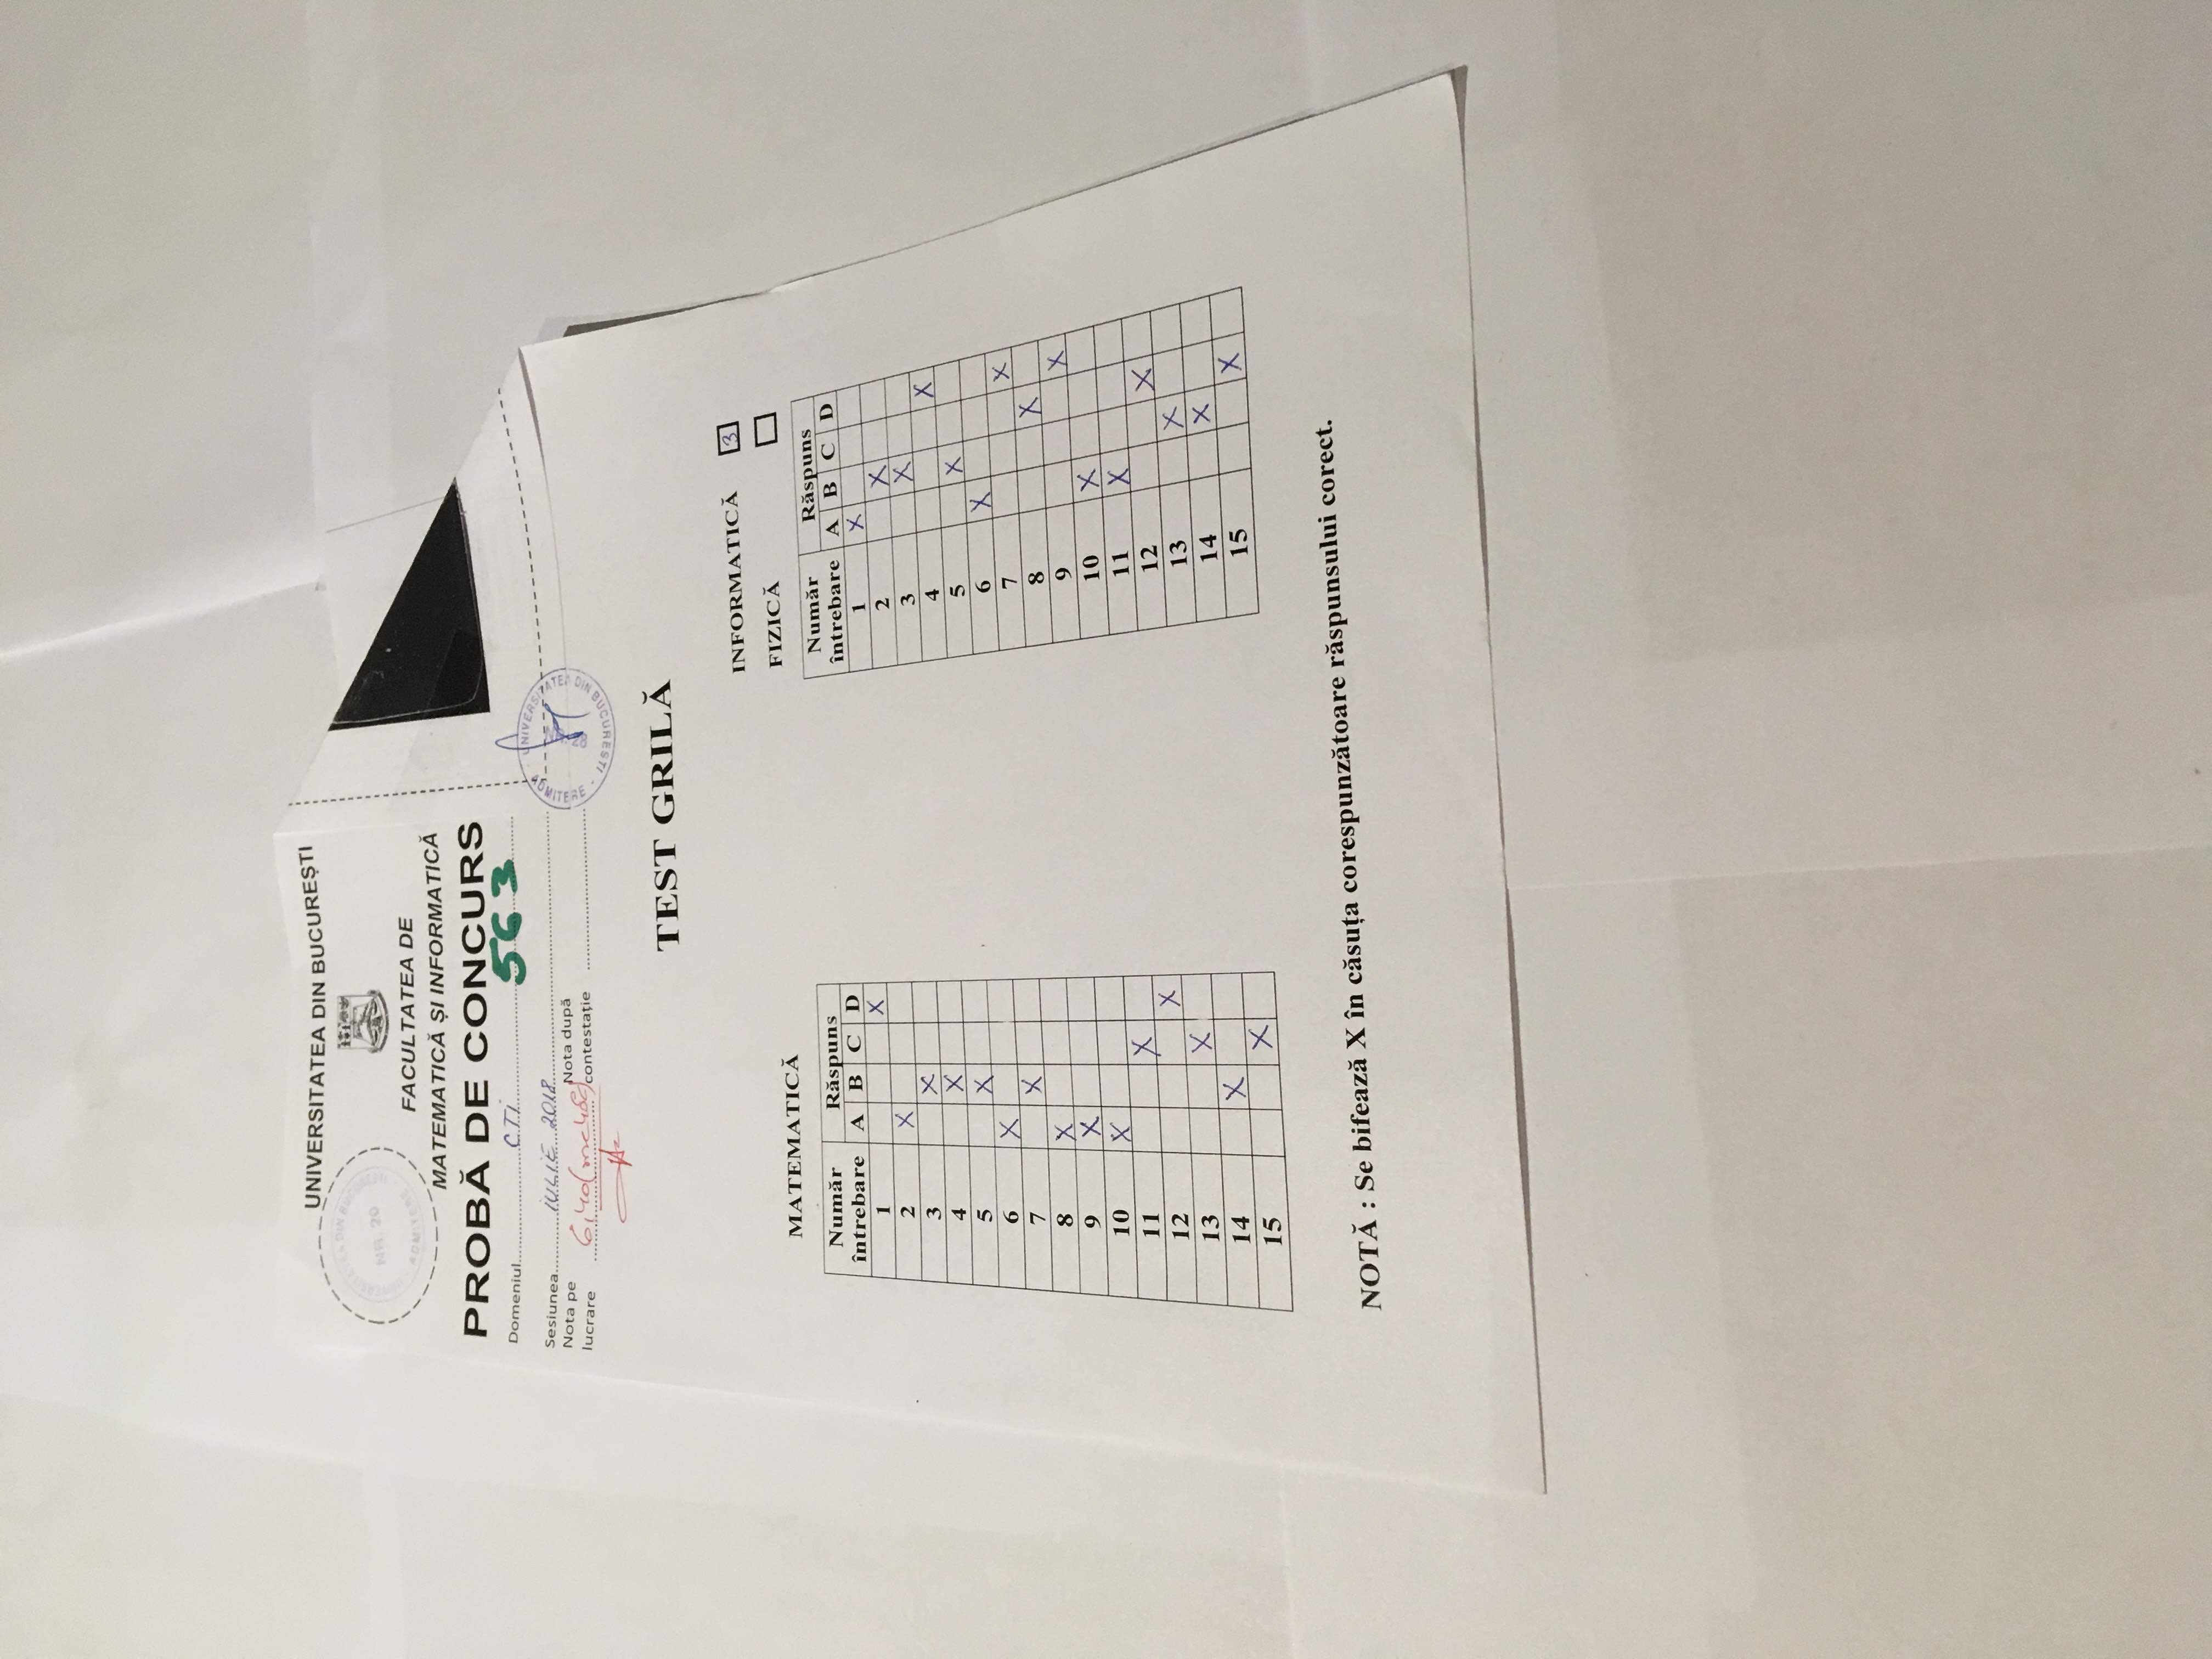 UNIVERSITATEA DIN BUCUREȘTI
UNIVERSITATEA DIN BUCURESTI
NR. 20
ADMITERE
FACULTATEA DE
MATEMATICĂ ȘI INFORMATICĂ
PROBĂ DE CONCURS
Domeniul CTI 563
Sesiunea IULIE 2018
Nota pe lucrare 6,40
Nota după contestație
UNIVERSITATEA DIN BUCURESTI - ADMITERE -
TEST GRILĂ
INFORMATICĂ 3
FIZICĂ
MATEMATICĂ
Număr întrebare Răspuns
A B C D
1 X
2 X
3 X
4 X
5 X
6 X
7 X
8 X
9 X
10 X
11 X
12 X
13 X
14 X
15 X
Număr întrebare Răspuns
A B C D
1 X
2 X
3 X
4 X
5 X
6 X
7 X
8 X
9 X
10 X
11 X
12 X
13 X
14 X
15 X
NOTĂ : Se bifează X în căsuța corespunzătoare răspunsului corect.